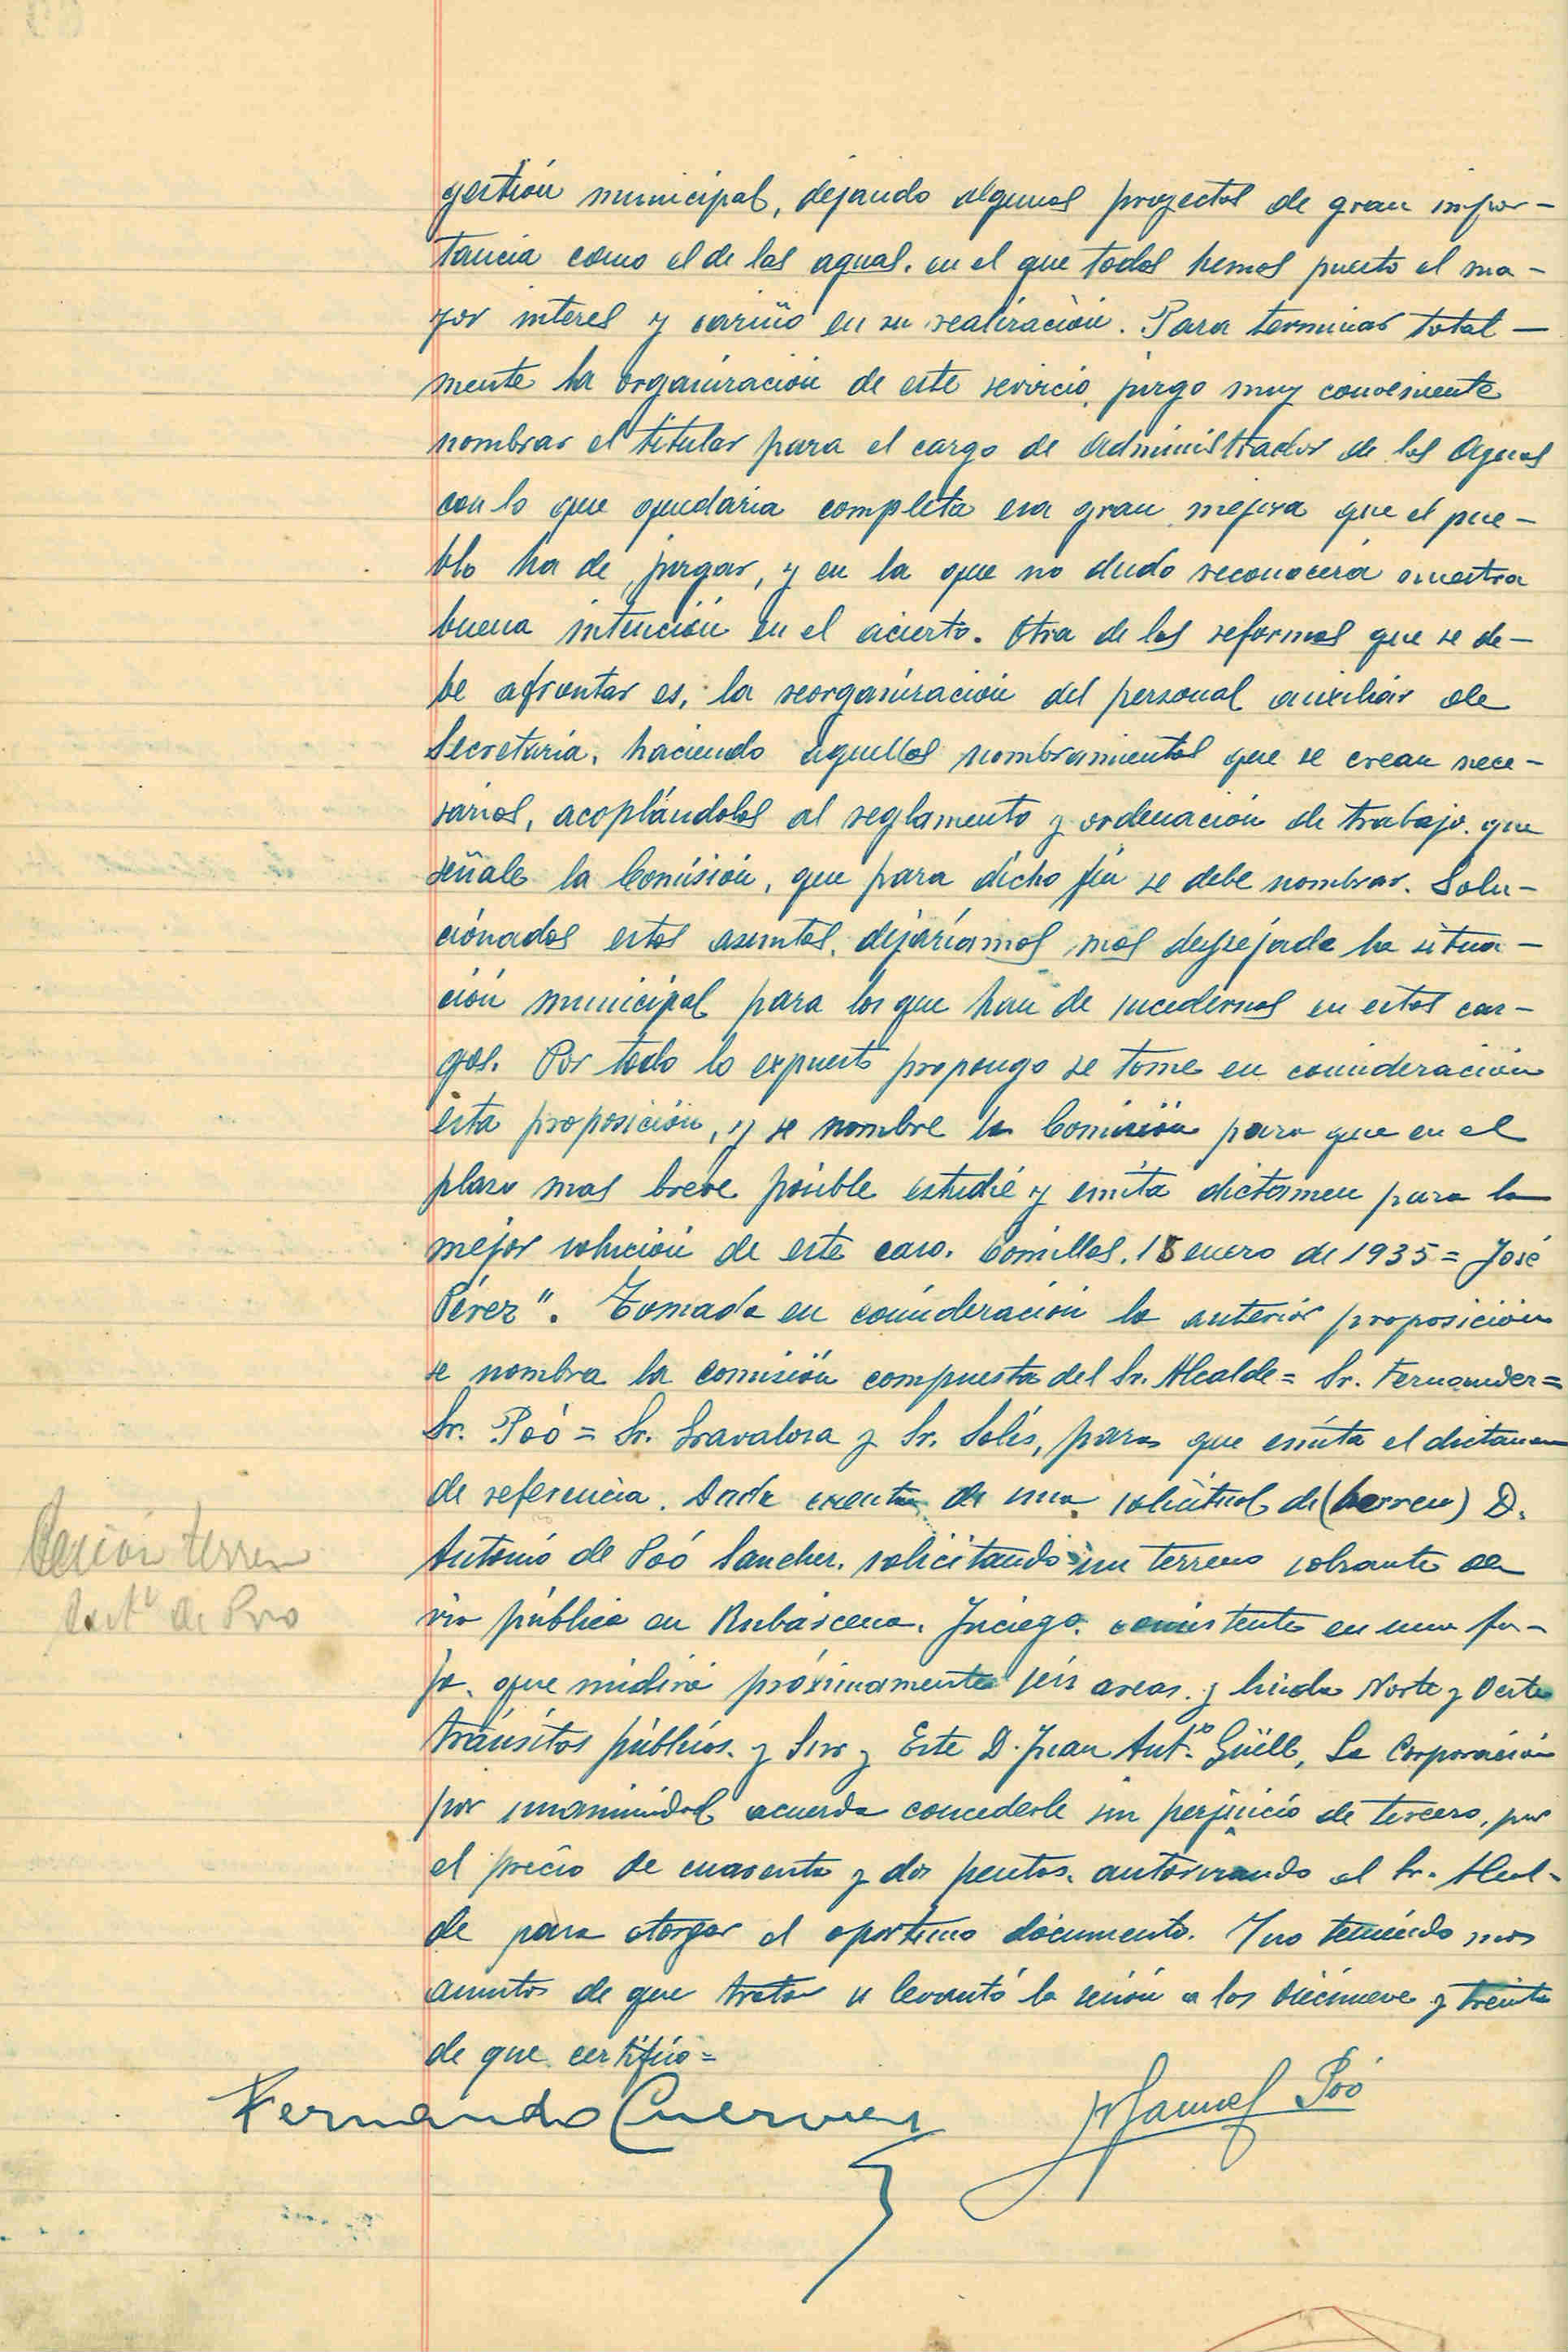 gestión municipal, dejando algunos proyectos de gran impor-
tancia como el de las aguas, en el que todos hemos puesto el ma-
yor interes y cariño en su realización. Para terminar total-
mente la organización de este servicio, juzgo muy conveniente
nombrar el titular para el cargo de Administrador de las Aguas
con lo que quedaria completa esa gran mejora que el pue-
blo ha de juzgar, y en la que no dudo reconocerá nuestra
buena intención en el acierto. Otra de las reformas que se de-
be afrontar es, la reorganización del personal auxiliar de
Secretaría, haciendo aquellos nombramientos que se crean nece-
sarios, acoplándolos al reglamento y ordenación de trabajo que
señale la Comisión, que para dicho fin se debe nombrar. Solu-
cionados estos asuntos, dejaríamos mas despejada la situa-
ción municipal para los que han de sucedernos en estos car-
gos. Por todo lo expuesto propongo se tome en consideración
esta proposición, y se nombre la Comisión para que en el
plazo mas breve posible estudie y emita dictamen para la
mejor solución de este caso. Comillas, 18 enero de 1935 = José
Pérez". Tomada en consideración la anterior proposición
se nombra la comisión compuesta del Sr. Alcalde = Sr. Fernandez =
Sr. Poó = Sr. Gravalosa y Sr. Solís, para que emita el dictamen
de referencia. Dada cuenta de una solicitud de (terreno) D.
Cesión terreno
Antonio de Poó Sanchez, solicitando un terreno sobrante de
Antº de Poo
via pública en Rubárcena, consistente en una fa-
ja, que medirá próximamente seis areas, y linda Norte y Oeste
tránsitos públicos, y Sur y Este D. Juan Antº Güell, La Corporación
por unanimidad acuerda concederle sin perjuicio de tercero, por
el precio de cuarenta y dos pesetas, autorizando al Sr. Alcal-
de para otorgar el oportuno documento. Y no teniendo mas
asuntos de que tratar se levantó la sesión a las diecinueve y treinta
de que certifico =
Fernando Cuerno Manuel Poó